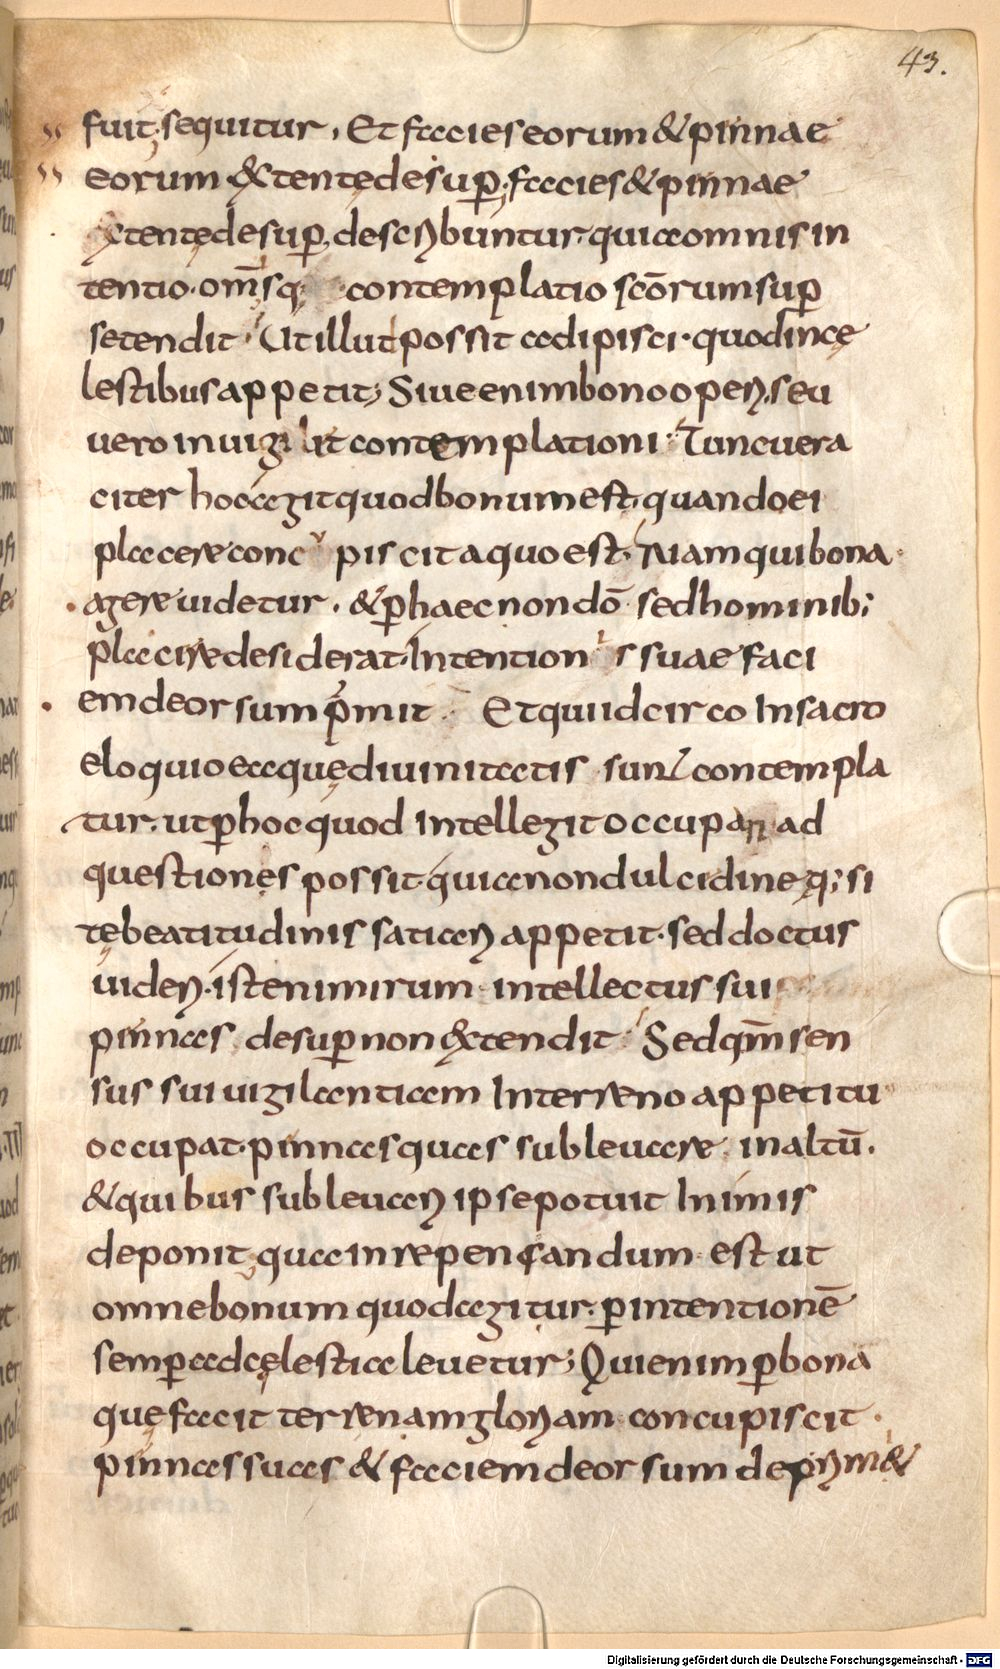 43.
fuit; sequitur, Et facies eorum & pinnae
eorum &tentę desup; facies & pinnae
extentę desup, describuntur. quia omnis in
tentio. om̅sq; contemplatio sc̅orum sup
se tendit. Ut illud possit adipisci. quod in cę
lestibus appetit; Siue enim bono operi, seu
uero inuigilit contemplationi. Tunc uera
citer hoc agit quod bonum est. quando ei
placere concupiscit a quo est. Nam qui bona
agere uidetur, & p haec non do̅ sed hominib;
placire desiderat. Intentionis suae faci
em deorsum pmit. Et quiidcirco In sacro
eloquio ea quę diuinitatis sunt contempla
tur. ut p hoc quod Intellegit occupari ad
questiones possit. quia non dulcidine q; si
tę beatitudinis satiari appetit. sed doctus
uideri. iste nimirum intellectus sui
pinnas desup non &tendit. Sed qm̅ sen
sus sui uigilantiam Interreno appetitu
occupat. pinnas quas subleuare in altu̅.
& quibus subleuari ipse potuit In imis
deponit, qua in re pensandum est ut
omne bonum quod agitur. p intentione̅
semp ad cęlestia leuetur; Qui enim p bona
quę facit terrenam gloriam concupiscit.
pinnas suas & faciem deorsum deprim&
Digitalisierung gefördert durch die Deutsche Forschungsgemeinschaft - DFG